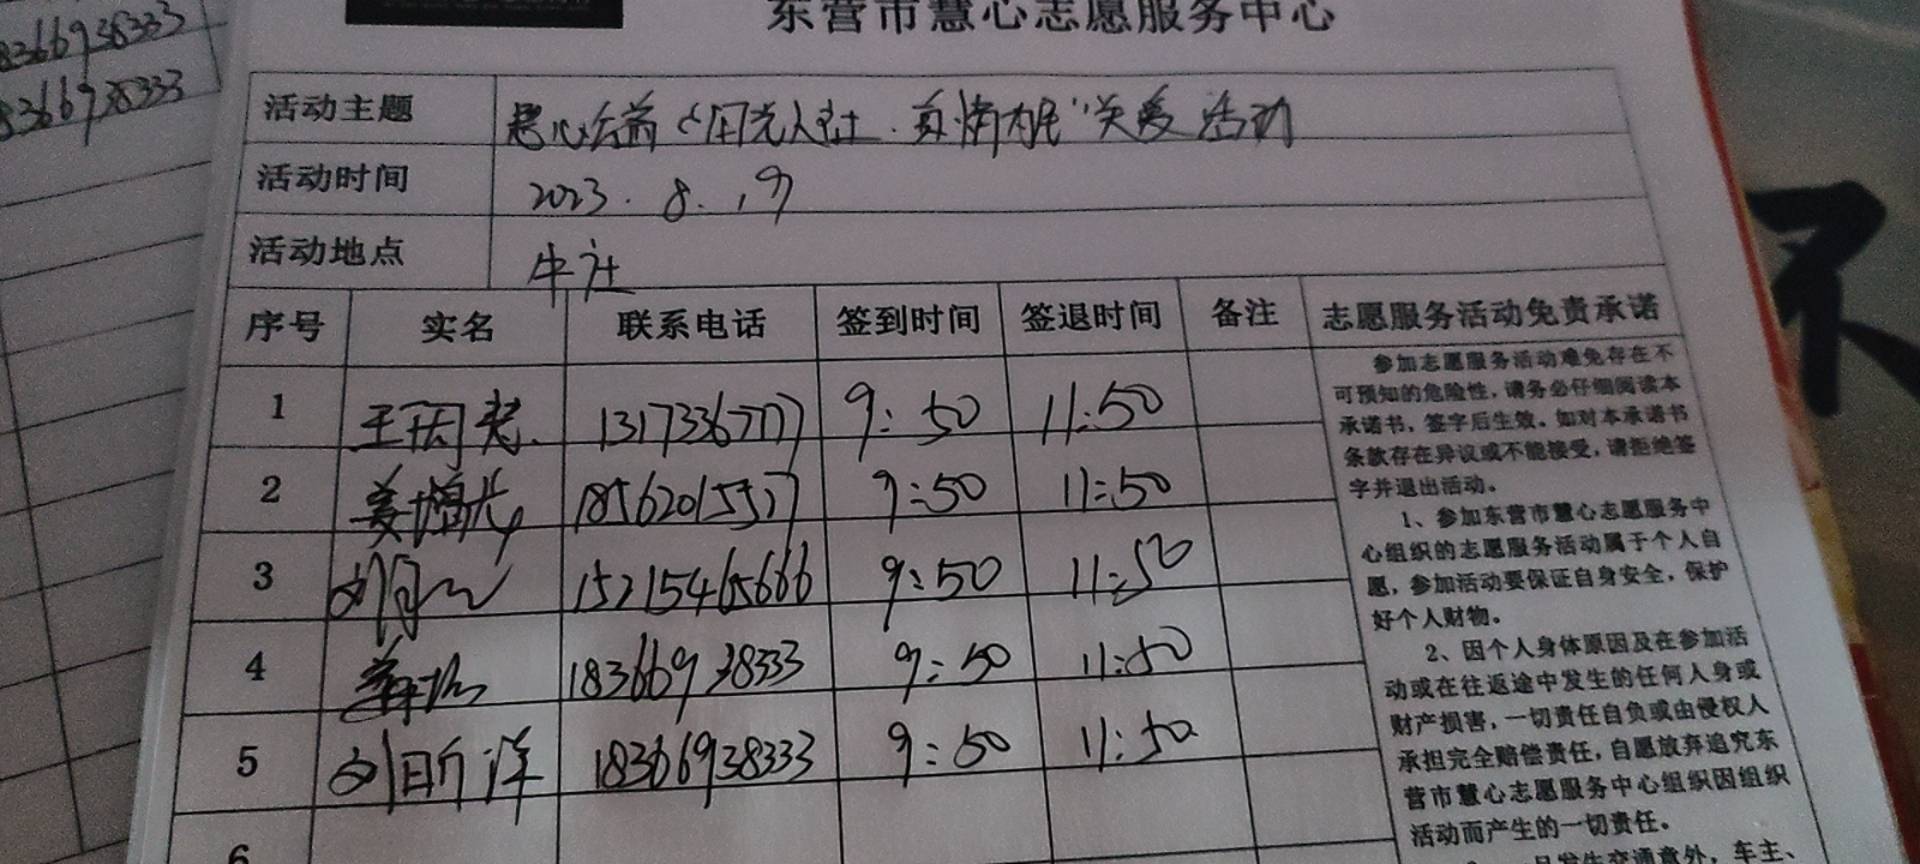 东营市慧心志愿服务中心
活动主题 慧心公益“阳光人社·真情为民”关爱活动
活动时间 2023.8.19
活动地点 牛社
序号 实名 联系电话 签到时间 签退时间 备注 志愿服务活动免责承诺
1 9:50 11:50
2 姜增光 9:50 11:50
3 15215465666 9:50 11:50
4 18366938333 9:50 11:50
5 刘昕洋 18366938333 9:50 11:50
6
参加志愿服务活动难免存在不
可预知的危险性,请务必仔细阅读本
承诺书,签字后生效。如对本承诺书
条款存在异议或不能接受,请拒绝签
字并退出活动。
1、参加东营市慧心志愿服务中
心组织的志愿服务活动属于个人自
愿,参加活动要保证自身安全,保护
好个人财物。
2、因个人身体原因及在参加活
动或在往返途中发生的任何人身或
财产损害,一切责任自负或由侵权人
承担完全赔偿责任,自愿放弃追究东
营市慧心志愿服务中心组织因组织
活动而产生的一切责任。
旦发生交通意外,车主、
8366938333
8366938333